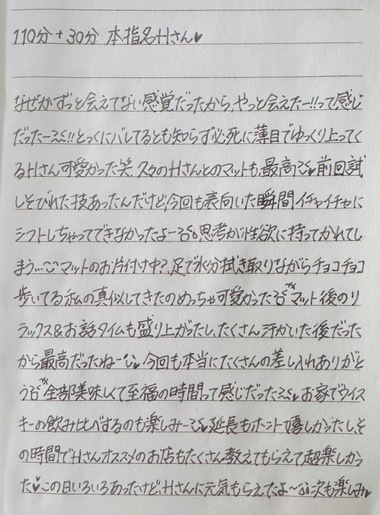 110分+30分 本指名Hさん♥
なぜかずっと会えてない感覚だったから、やっと会えたー!!って感じ
だったー!!とっくにバレてるとも知らず必死に薄目でゆっくり上ってく
るHさん可愛かった笑 久々のHさんとのマットも最高 前回試
しそびれた技あったんだけど、今回も表向いた瞬間イチャイチャに
シフトしちゃってできなかったよー 思考が性欲に持ってかれてし
まう… マットのお片付け中?足で水分拭き取りながらチョコチョコ
歩いてる私の真似してきたのめっちゃ可愛かった マット後のリ
ラックス&お話タイムも盛り上がったし、たくさん汗かいた後だった
から最高だったねー 今回も本当にたくさんの差し入れありがと
う 全部美味しくて至福の時間って感じだった お家でウイス
キーの飲み比べするのも楽しみー 延長もホント嬉しかったし、そ
の時間でHさんオススメのお店もたくさん教えてもらえて超楽しかっ
た♥この日いろいろあったけど、Hさんに元気もらえたよ〜 次も楽しみ♥